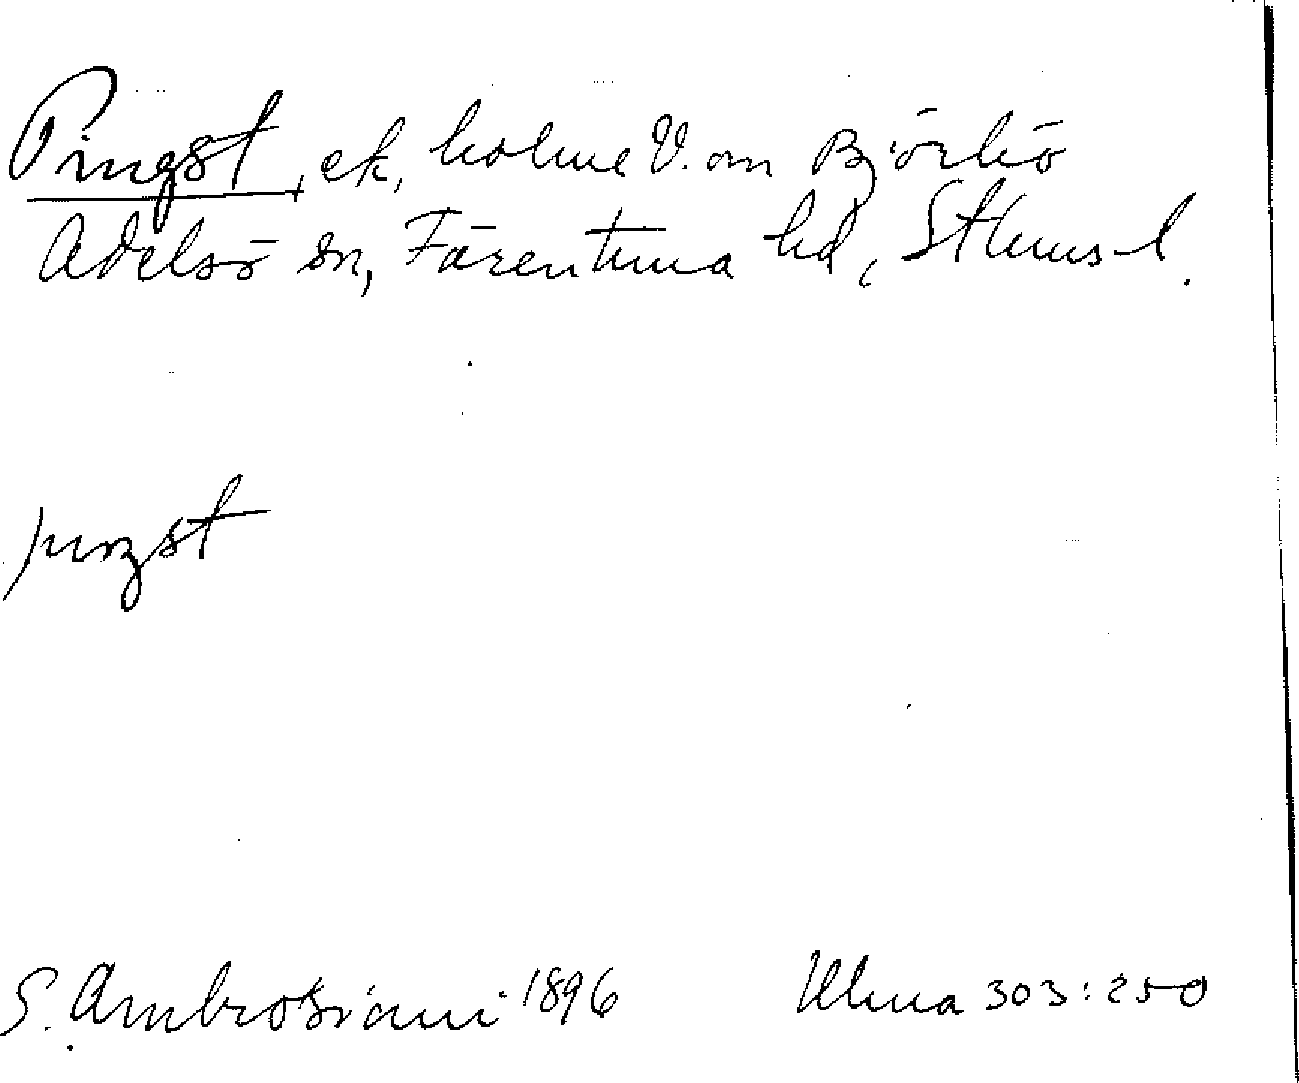 Pingst, ek, holme V. om Björkö
Adelsö sn, Färentuna hd, Sthms l.
pingst
S. Ambrosiani 1896 Ulma 303:250